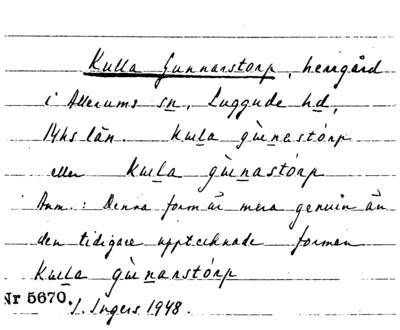 Kulla Gunnarstorp, herrgård
i Allerums sn, Luggude hd,
Mhs län. Kulla gùnastórp
eller Kulla gùnastórp
Anm.: Denna form är mera genuin än
den tidigare upptecknade formen
Kulla gùnarstórp
Nr 5670. I. Ingers 1948.